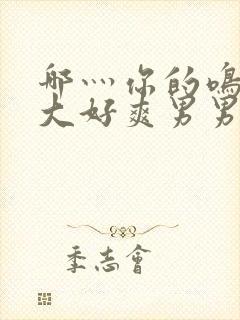 哪灬你的鳴
大好爽男男
季志會